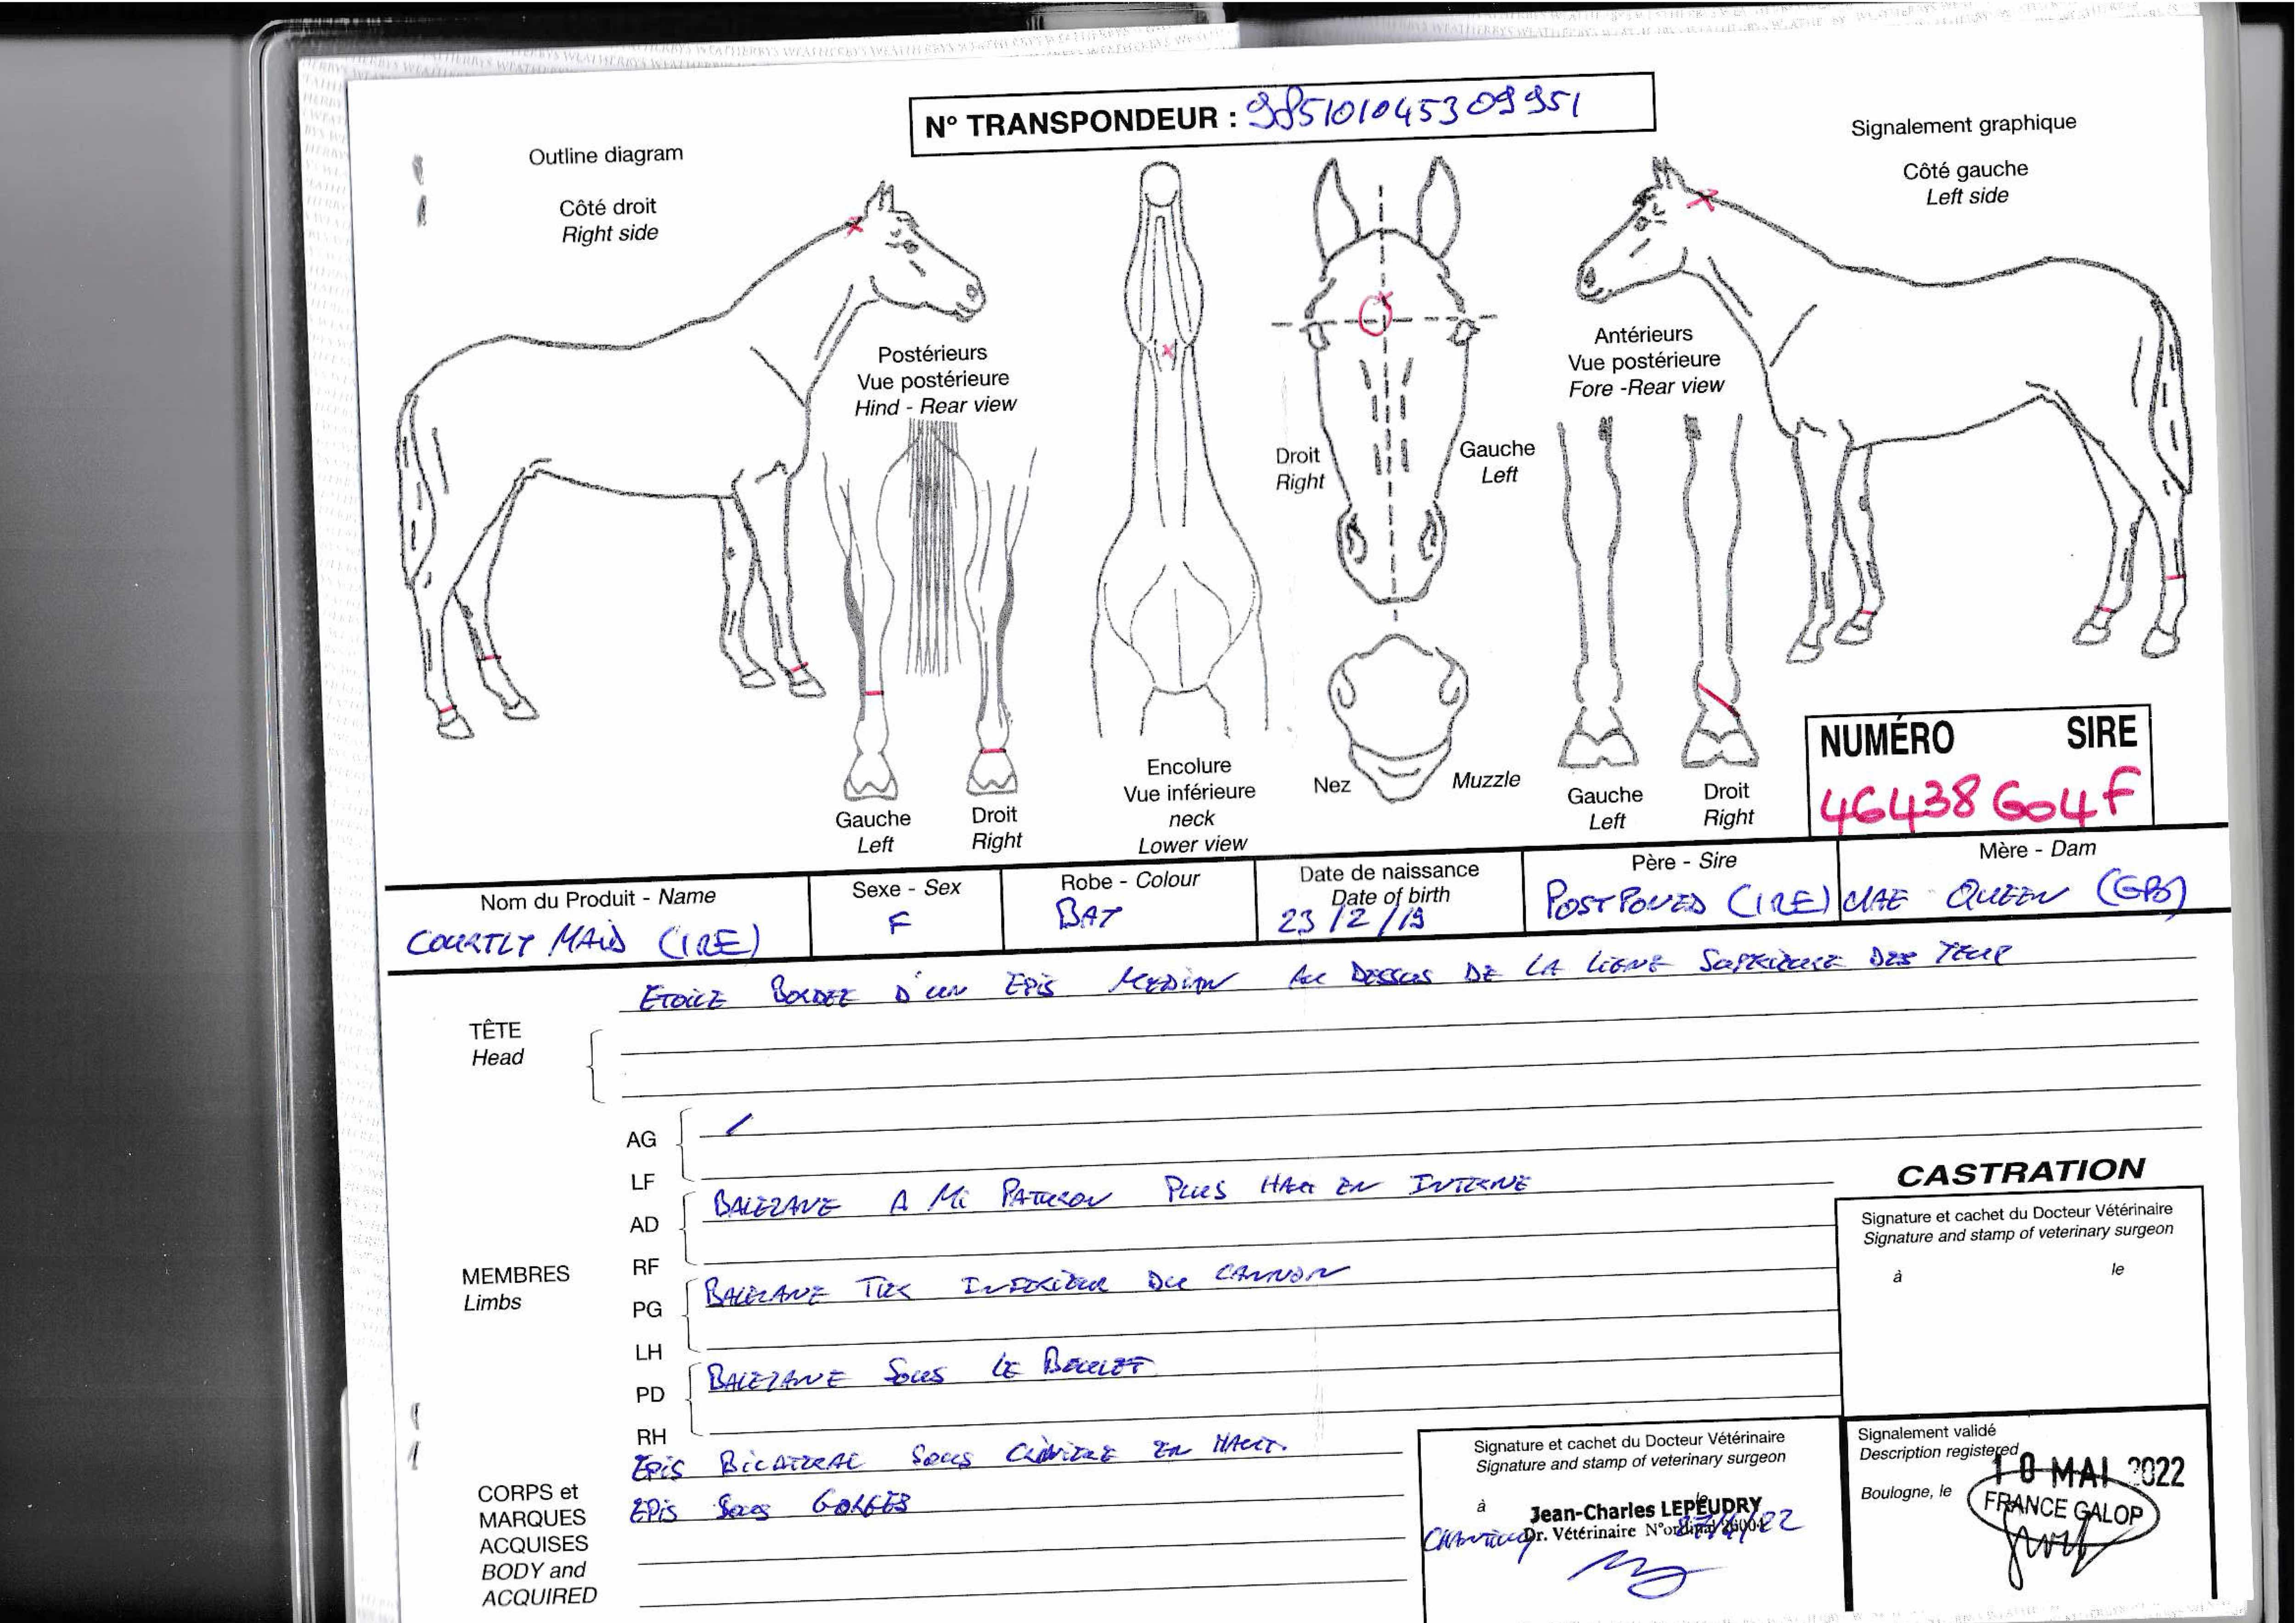 N° TRANSPONDEUR : 985101045309951
Outline diagram
Côté droit
Right side
Signalement graphique
Côté gauche
Left side
Postérieurs
Vue postérieure
Hind - Rear view
Antérieurs
Vue postérieure
Fore -Rear view
Droit
Right
Gauche
Left
Gauche
Left
Droit
Right
Encolure
Vue inférieure
neck
Lower view
Nez
Muzzle
Gauche
Left
Droit
Right
NUMÉRO SIRE
46438604F
Nom du Produit - Name
COURTLY MAID (IRE)
Sexe - Sex
F
Robe - Colour
BAY
Date de naissance
Date of birth
23/2/19
Père - Sire
POSTPONED (IRE)
Mère - Dam
QUEEN (GB)
TÊTE
Head
ETOILE BORDEE D'UN EPIS MEDIAN AU DESSUS DE LA LIGNE SUPERIEURE DES YEUX
MEMBRES
Limbs
AG
LF
/
AD
RF
BALEZANE A MI PATURON PLUS HAUT EN INTERNE
PG
LH
BALEZANE TIERS INFERIEUR DU CANNON
PD
RH
BALEZANE SOUS LE BOULET
CORPS et
MARQUES
ACQUISES
BODY and
ACQUIRED
EPIS BILATERAL SOUS CRINIERE EN HAUT.
EPIS SOUS GORGES
CASTRATION
Signature et cachet du Docteur Vétérinaire
Signature and stamp of veterinary surgeon
à le
Signature et cachet du Docteur Vétérinaire
Signature and stamp of veterinary surgeon
à le
Jean-Charles LEPEUDRY
CHANTILLY Dr. Vétérinaire N°ordinal
Signalement validé
Description registered
10 MAI 2022
Boulogne, le
FRANCE GALOP